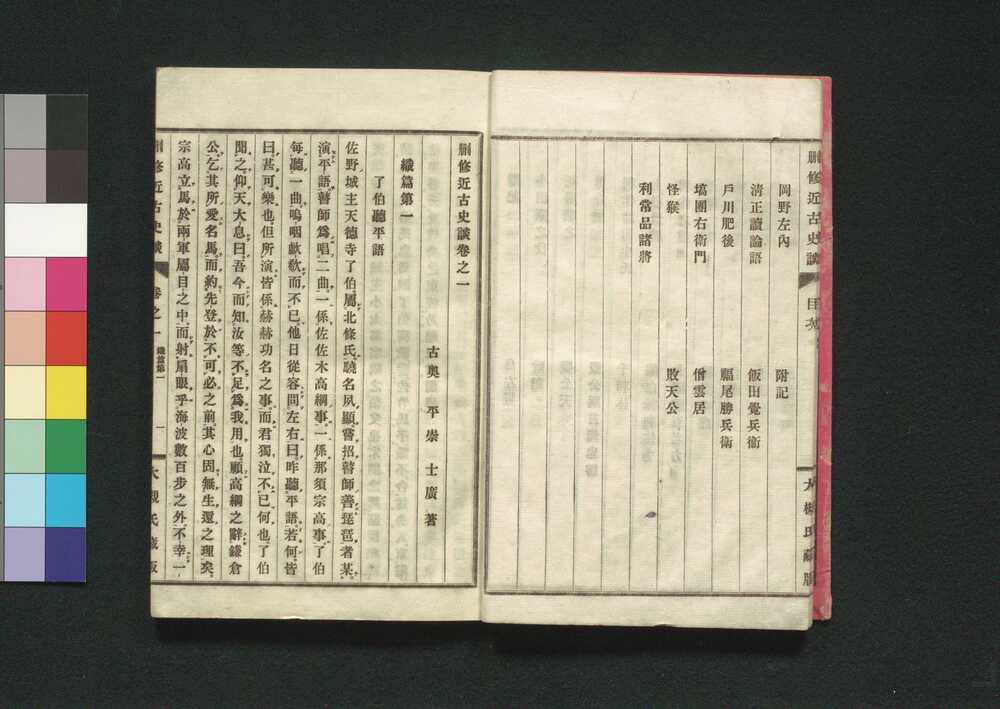 刪修近古史談 目次
岡野左內 附記
淸正讀論語 飯田覺兵衞
戶川肥後 福尾勝兵衞
塙團右衞門 僧雲居
怪猴 敗天公
利常品諸將
大槻氏藏版
刪修近古史談卷之一
古奧 平崇 士廣著
織篇第一
了伯聽平語
佐野城主天德寺了伯屬北條氏驍名夙顯嘗招瞽師善琵琶者某
演平語瞽師爲唱二曲一係佐佐木高綱事一係那須宗高事了伯
每聽一曲嗚咽歔欷而不已他日從容問左右曰昨聽平語若何皆
曰甚可樂也但所演皆係赫赫功名之事而君獨泣不已何也了伯
聞之仰天大息曰吾今而知汝等不足爲我用也顧高綱之辭鎌倉
公乞其所愛名馬而約先登於不可必之前其心固無生還之理矣
宗高立馬於兩軍屬目之中而射扇眼乎海波數百步之外不幸一
刪修近古史談 卷之一 織篇第一 一 大槻氏藏版